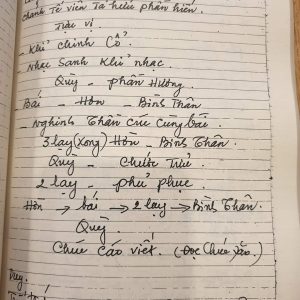 chánh Tế viên Tả hiến phần hiến.
Tựu vị
- Khỉ chinh Cổ.
- Nhạc Sanh Khỉ nhạc.
Quỳ - phần Hương
Bái - Hờn - Bình Thân
- Nghinh Thần Cúc Cung bái.
3 lạy (xong) Hờn - Bình Thân.
Quỳ - Chước Tửu
2 lạy - phủ phục
Hờn → bái → 2 lạy → Bình Thân.
Quỳ.
Chúc Cáo viết. (Đọc Chúc